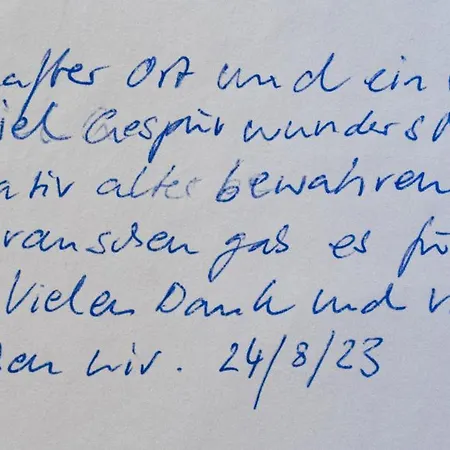 after Ort und ein
iel Gespür wunders
ativ altes bewahren
rauschen gab es für
Vielen Dank und v
en wir. 24/8/23